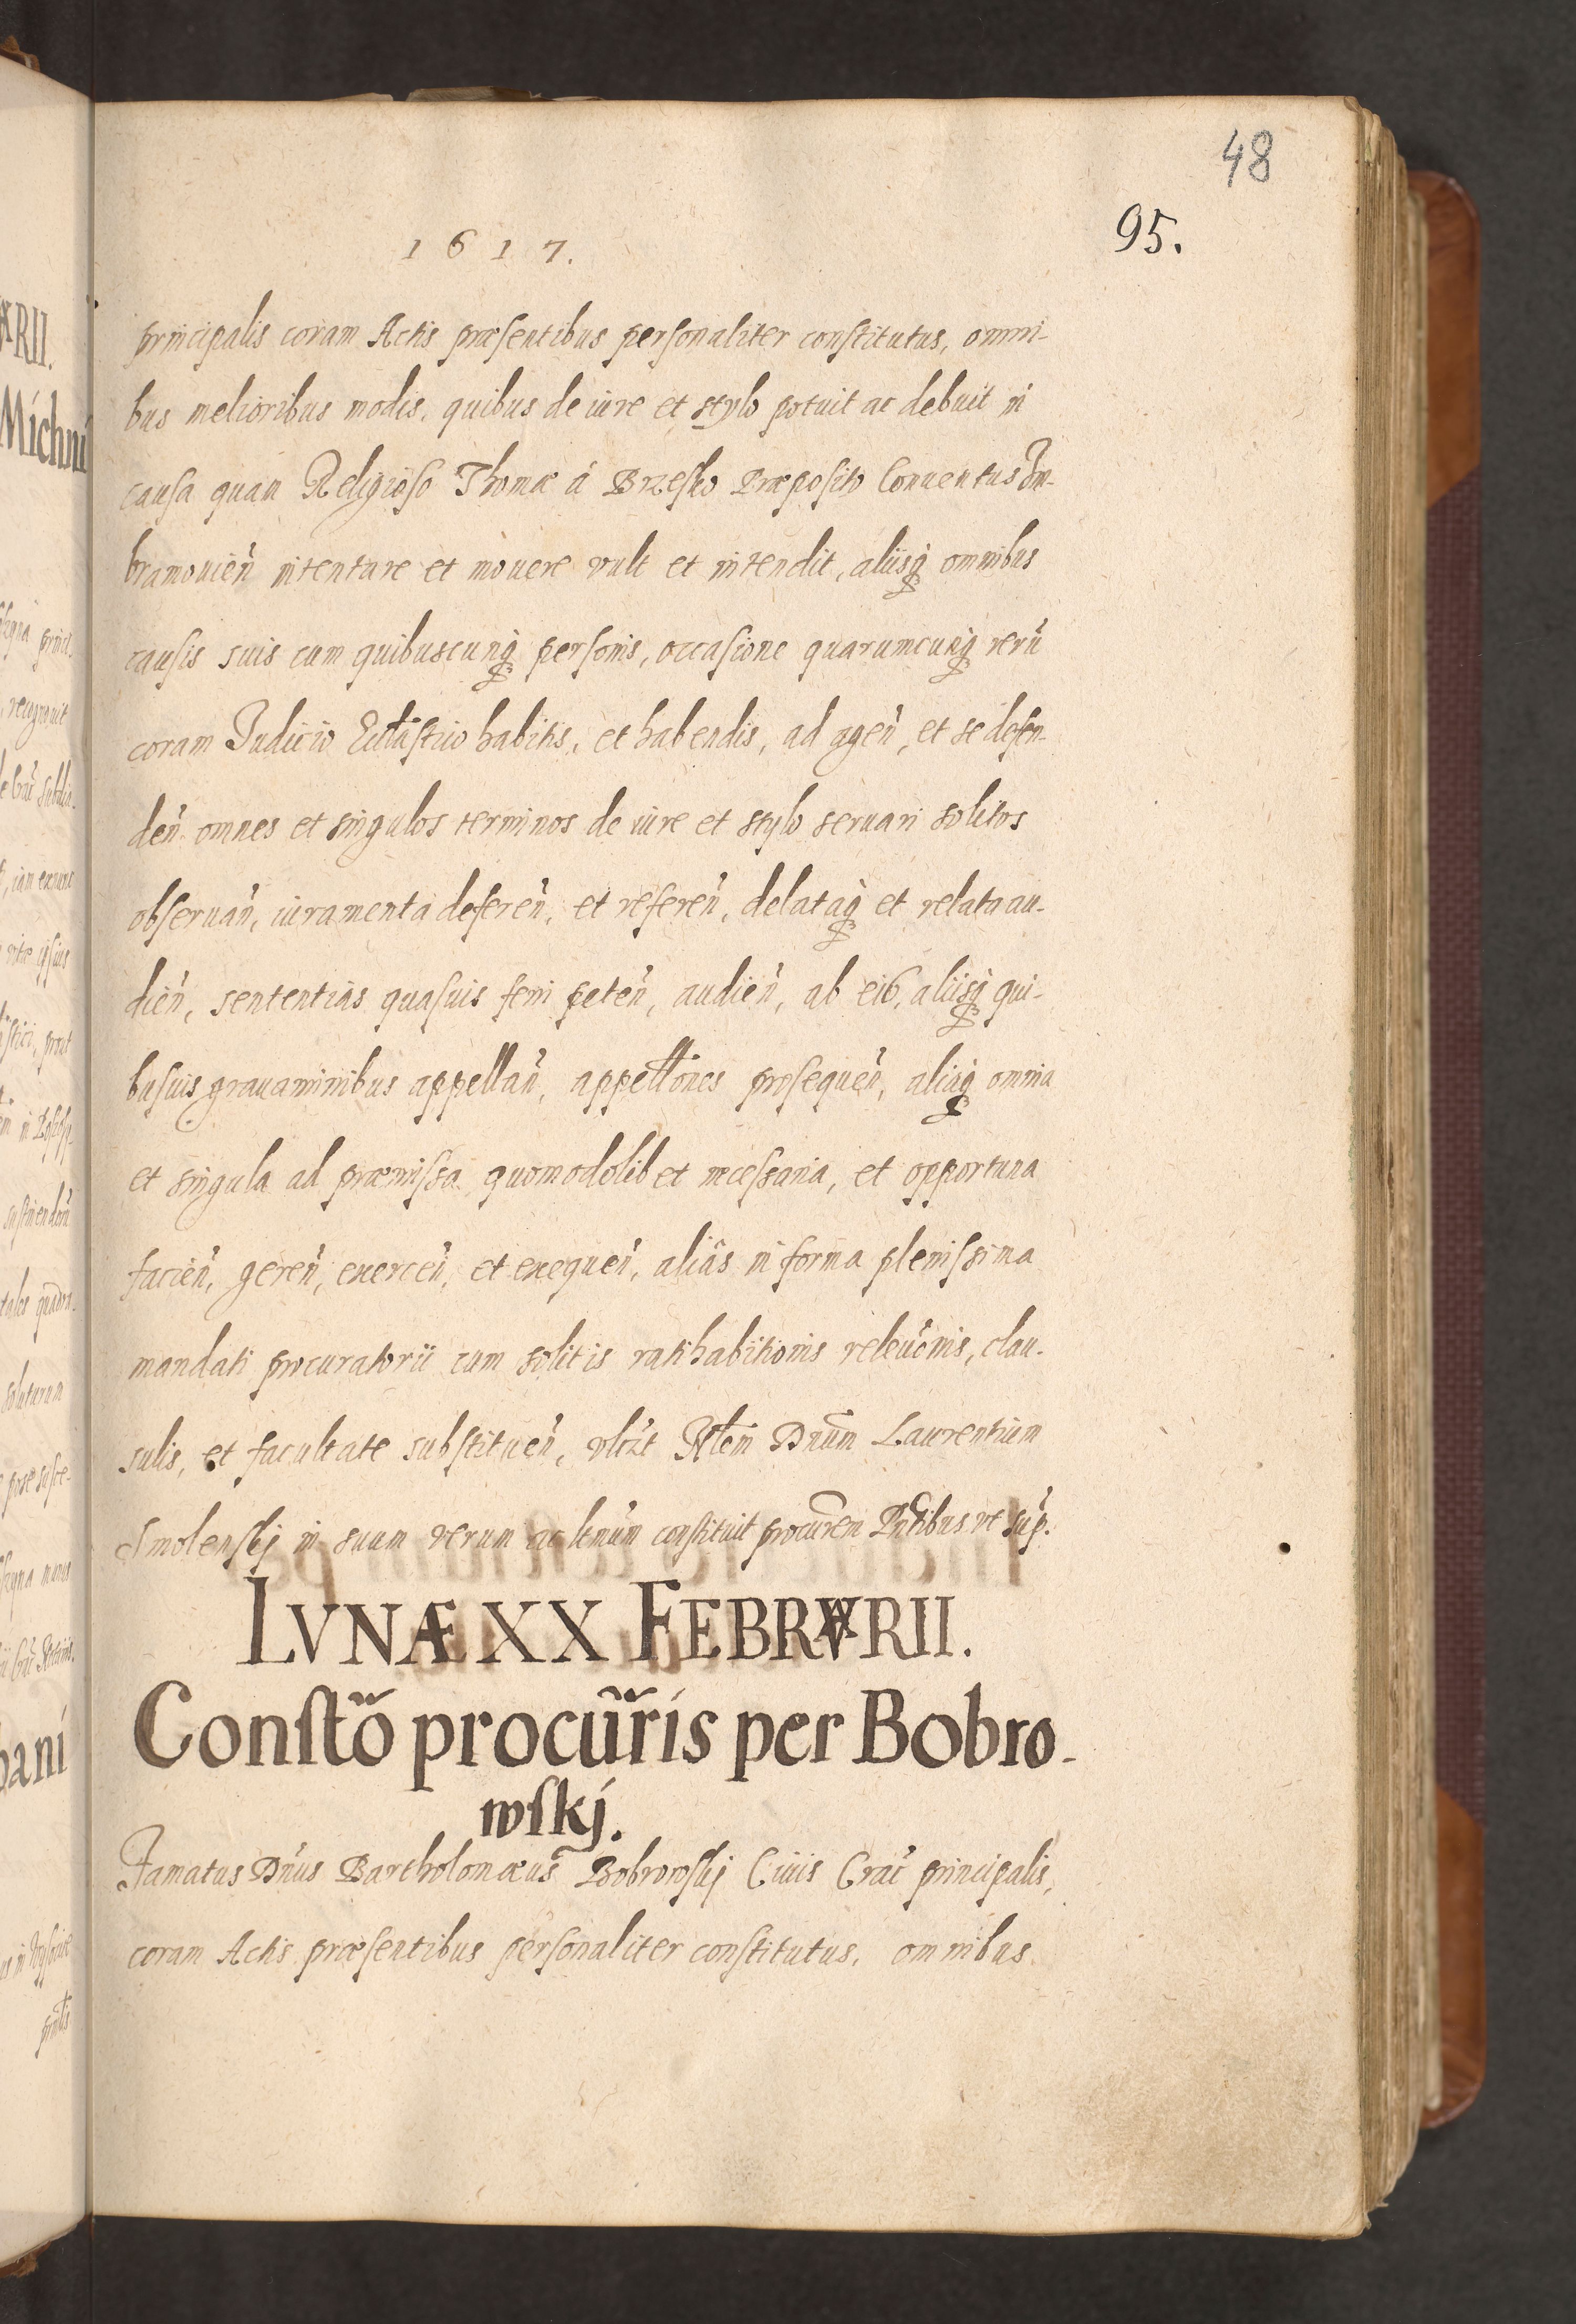 48
95.
1617.
principalis coram Actis præsentibus personaliter constitutus, omni-
bus melioribus modis, quibus de iure et stylo potuit ac debuit in
causa quam Religioso Thomæ à Brzesko Præposito Conuentus Im-
bramouien̄ intentare et mouere vult et intendit, aliisq̃ omnibus
causis suis cum quibuscunq̃ personis, occasione quarumcunq̃ rerū
coram Iudicio Ecclāstico habitis, et habendis, ad agen̄, et se defen-
den̄ omnes et singulos terminos de iure et stylo seruari solitos
obseruan̄, iuramenta deferen̄, et referen̄, delataq̃ et relata au-
dien̄, sententias quasuis ferri peten̄, audien̄, ab eis, aliisq̃ qui-
busuis grauaminibus appellan̄, appellōnes prosequen̄, aliaq̃ omnia
et singula ad præmissa quomodolibet necessaria, et opportuna
facien̄, geren̄, exercen̄, et exequen̄, aliâs in forma plenissima
mandati procuratorii cum solitis ratihabitionis releuōnis, clau-
sulis, et facultate substituen̄, vlt Dnūm Laurentium
Smolenskj in suum verum ac ltmūm constituit procūrem Pntibus vt sup̄.
LVNÆ XX FEBRVARII.
Constō procūris per Bobro-
wskj.
Famatus Dn̄us Bartholomæus Bobrowskj Ciuis Crac̄ principalis,
coram Actis præsentibus personaliter constitutus, omnibus
ARII.
Michni
bani